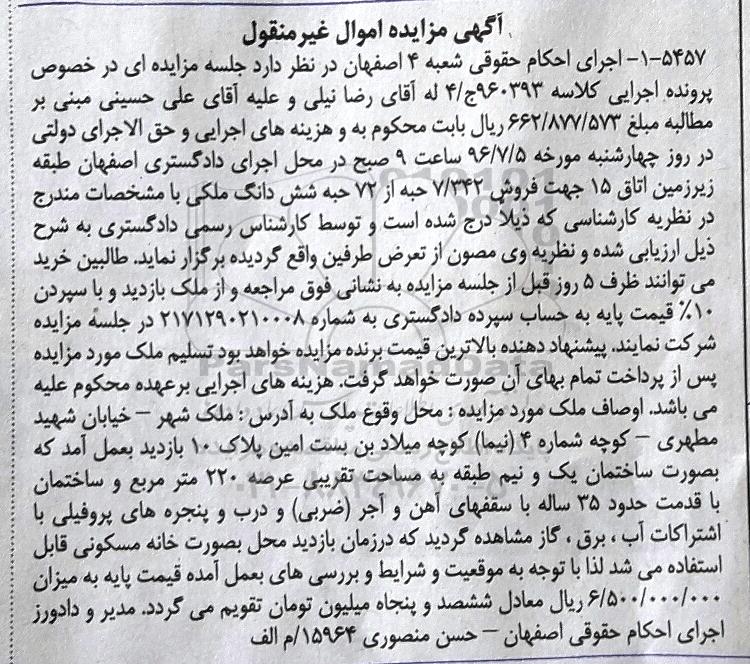 آگهی مزایده اموال غیرمنقول
۵۴۵۷-۱- اجرای احکام حقوقی شعبه ۴ اصفهان در نظر دارد جلسه مزایده ای در خصوص
پرونده اجرایی کلاسه ۹۶۰۳۹۳ج/۴ له آقای رضا نیلی و علیه آقای علی حسینی مبنی بر
مطالبه مبلغ ۶۶۲/۸۷۷/۵۷۳ ریال بابت محکوم به و هزینه های اجرایی و حق الاجرای دولتی
در روز چهارشنبه مورخه ۹۶/۷/۵ ساعت ۹ صبح در محل اجرای دادگستری اصفهان طبقه
زیرزمین اتاق ۱۵ جهت فروش ۷/۳۴۲ حبه از ۷۲ حبه شش دانگ ملکی با مشخصات مندرج
در نظریه کارشناسی که ذیلاً درج شده است و توسط کارشناس رسمی دادگستری به شرح
ذیل ارزیابی شده و نظریه وی مصون از تعرض طرفین واقع گردیده برگزار نماید. طالبین خرید
می توانند ظرف ۵ روز قبل از جلسه مزایده به نشانی فوق مراجعه و از ملک بازدید و با سپردن
۱۰٪ قیمت پایه به حساب سپرده دادگستری به شماره ۲۱۷۱۲۹۰۲۱۰۰۰۸ در جلسه مزایده
شرکت نمایند. پیشنهاد دهنده بالاترین قیمت برنده مزایده خواهد بود تسلیم ملک مورد مزایده
پس از پرداخت تمام بهای آن صورت خواهد گرفت. هزینه های اجرایی برعهده محکوم علیه
می باشد. اوصاف ملک مورد مزایده : محل وقوع ملک به آدرس : ملک شهر – خیابان شهید
مطهری – کوچه شماره ۴ (نیما) کوچه میلاد بن بست امین پلاک ۱۰ بازدید بعمل آمد که
بصورت ساختمان یک و نیم طبقه به مساحت تقریبی عرصه ۲۲۰ متر مربع و ساختمان
با قدمت حدود ۳۵ ساله با سقفهای آهن و آجر (ضربی) و درب و پنجره های پروفیلی با
اشتراکات آب ، برق ، گاز مشاهده گردید که درزمان بازدید محل بصورت خانه مسکونی قابل
استفاده می شد لذا با توجه به موقعیت و شرایط و بررسی های بعمل آمده قیمت پایه به میزان
۶/۵۰۰/۰۰۰/۰۰۰ ریال معادل ششصد و پنجاه میلیون تومان تقویم می گردد. مدیر و دادورز
اجرای احکام حقوقی اصفهان – حسن منصوری ۱۵۹۶۴/م الف
ParsNamadData